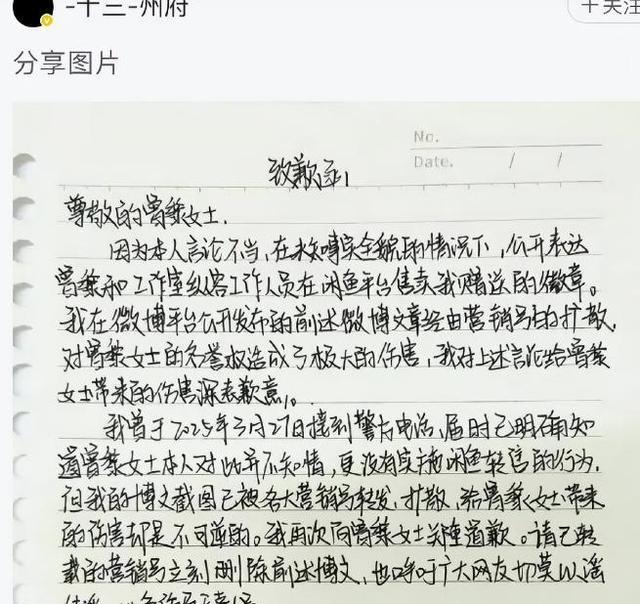 -十三-州府
+关注
分享图片
No.
Date. / /
致歉函
尊敬的曾黎女士.
因为本人言论不当,在未知事实全貌的情况下,公开表达
曾黎和工作室纵容工作人员在闲鱼平台售卖我赠送的徽章。
我在微博平台公开发布的前述微博文章经由营销号的扩散,
对曾黎女士的名誉权造成了极大的伤害,我对上述言论给曾黎
女士带来的伤害深表歉意。
我曾于2025年3月27日接到警方电话,届时已明确知
道曾黎女士本人对此并不知情,更没有实施闲鱼转售的行为,
但我的博文截图已被各大营销号转发,扩散,给曾黎女士带来
的伤害却是不可逆的。我再次向曾黎女士郑重道歉。请已转
载的营销号立刻删除前述博文,也呼吁广大网友切莫以谣